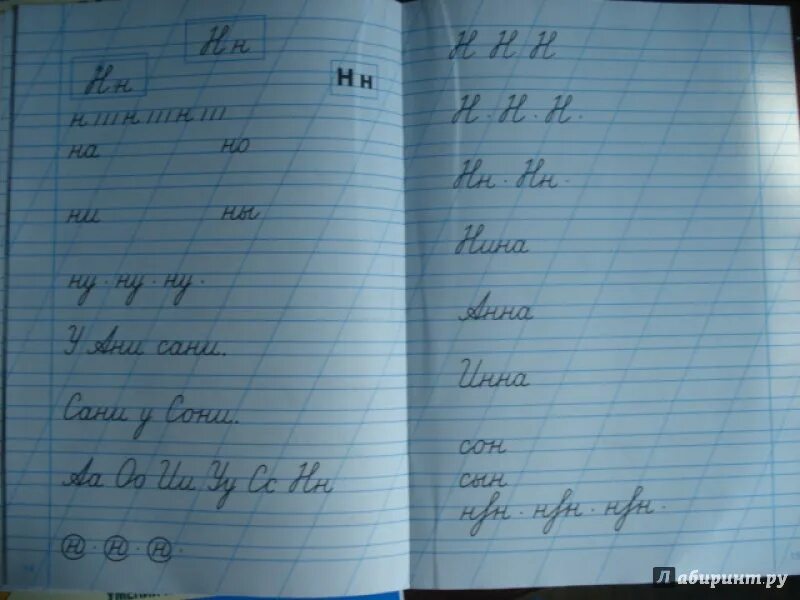 Нн
Нн
Н н
н н н
на но
ни ны
ну · ну · ну ·
У Ани сани.
Сани у Сони.
Аа Оо Ии Уу Сс Нн
н · н · н ·
Н Н Н
Н · Н · Н ·
Нн · Нн ·
Нина
Анна
Инна
сон
сын
Лабиринт.ру